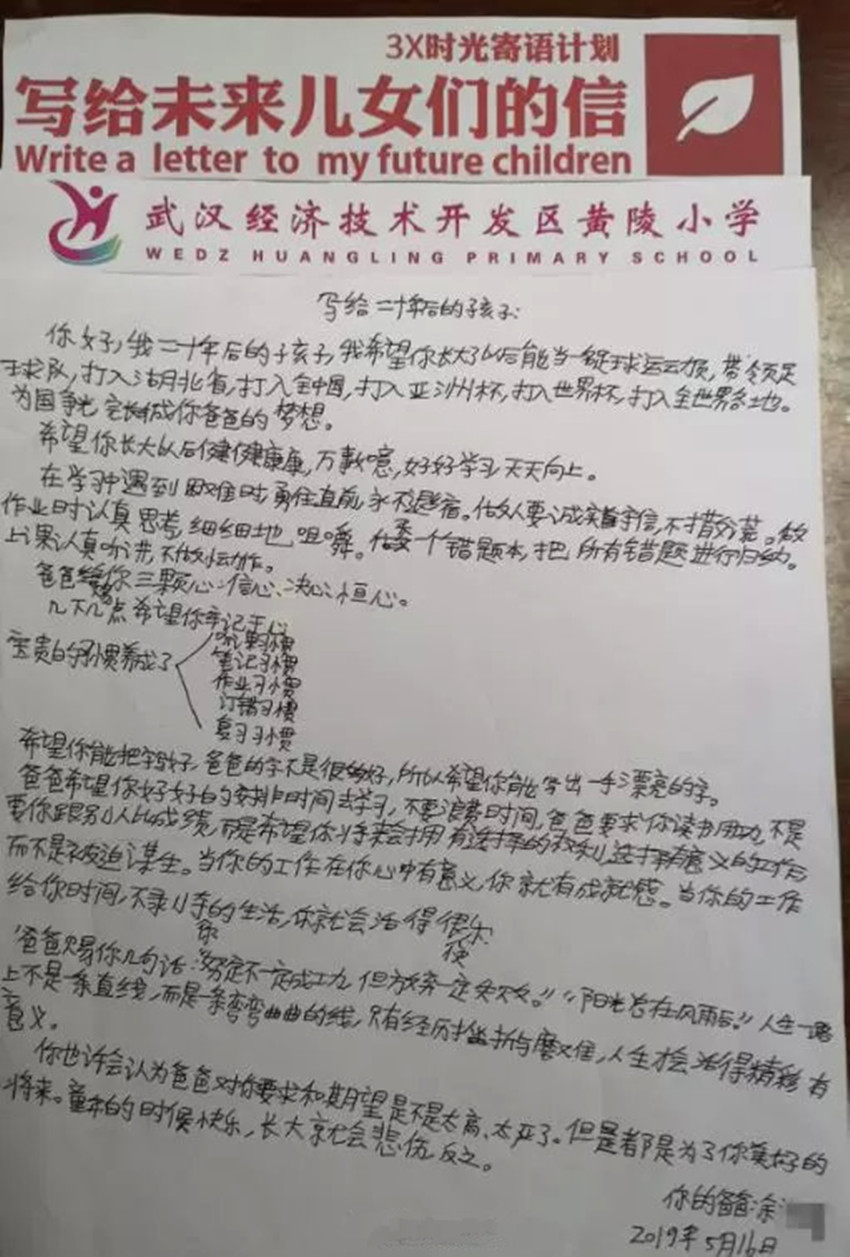 3X时光寄语计划
写给未来儿女们的信
Write a letter to my future children
武汉经济技术开发区黄陵小学
WEDZ HUANGLING PRIMARY SCHOOL
写给二十年后的孩子:
你好,我二十年后的孩子,我希望你长大了以后能当一名足球运动员,带领足
球队,打入湖北省,打入全中国,打入亚洲杯,打入世界杯,打入全世界各地。
为国争光,完成你爸爸的梦想。
希望你长大以后健健康康,万事如意,好好学习天天向上。
在学习中遇到困难时勇往直前永不退缩。做人要诚实守信,不抄袭。做
作业时认真思考,细细地咀嚼。做一个错题本,把所有错题进行归纳。
上课认真听讲,不做小动作。
爸爸给你三颗心:信心、决心、恒心。
以下几点希望你牢记于心
宝贵的习惯养成了
听课习惯
笔记习惯
作业习惯
订错习惯
复习习惯
希望你能把字写好,爸爸的字不是很好,所以希望你能写出一手漂亮的字。
爸爸希望你好好的安排时间去学习,不要浪费时间,爸爸要求你读书用功,不是
要你跟别人比成绩,而是希望你将来会拥有选择的权利,选择有意义的工作,
而不是被迫谋生。当你的工作在你心中有意义,你就有成就感。当你的工作
给你时间,不剥夺你的生活,你就会活得很快乐
爸爸赐你几句话:“努力不一定成功,但放弃一定失败。”“阳光总在风雨后。”人生一路
上不是一条直线,而是一条弯弯曲曲的线,只有经历挫折与磨难,人生才会活得精彩有
意义。
你也许会认为爸爸对你要求和期望是不是太高、太严了。但是都是为了你美好的
将来。童年的时候快乐,长大就会悲伤,反之。
你的爸爸:涂
2019年5月16日